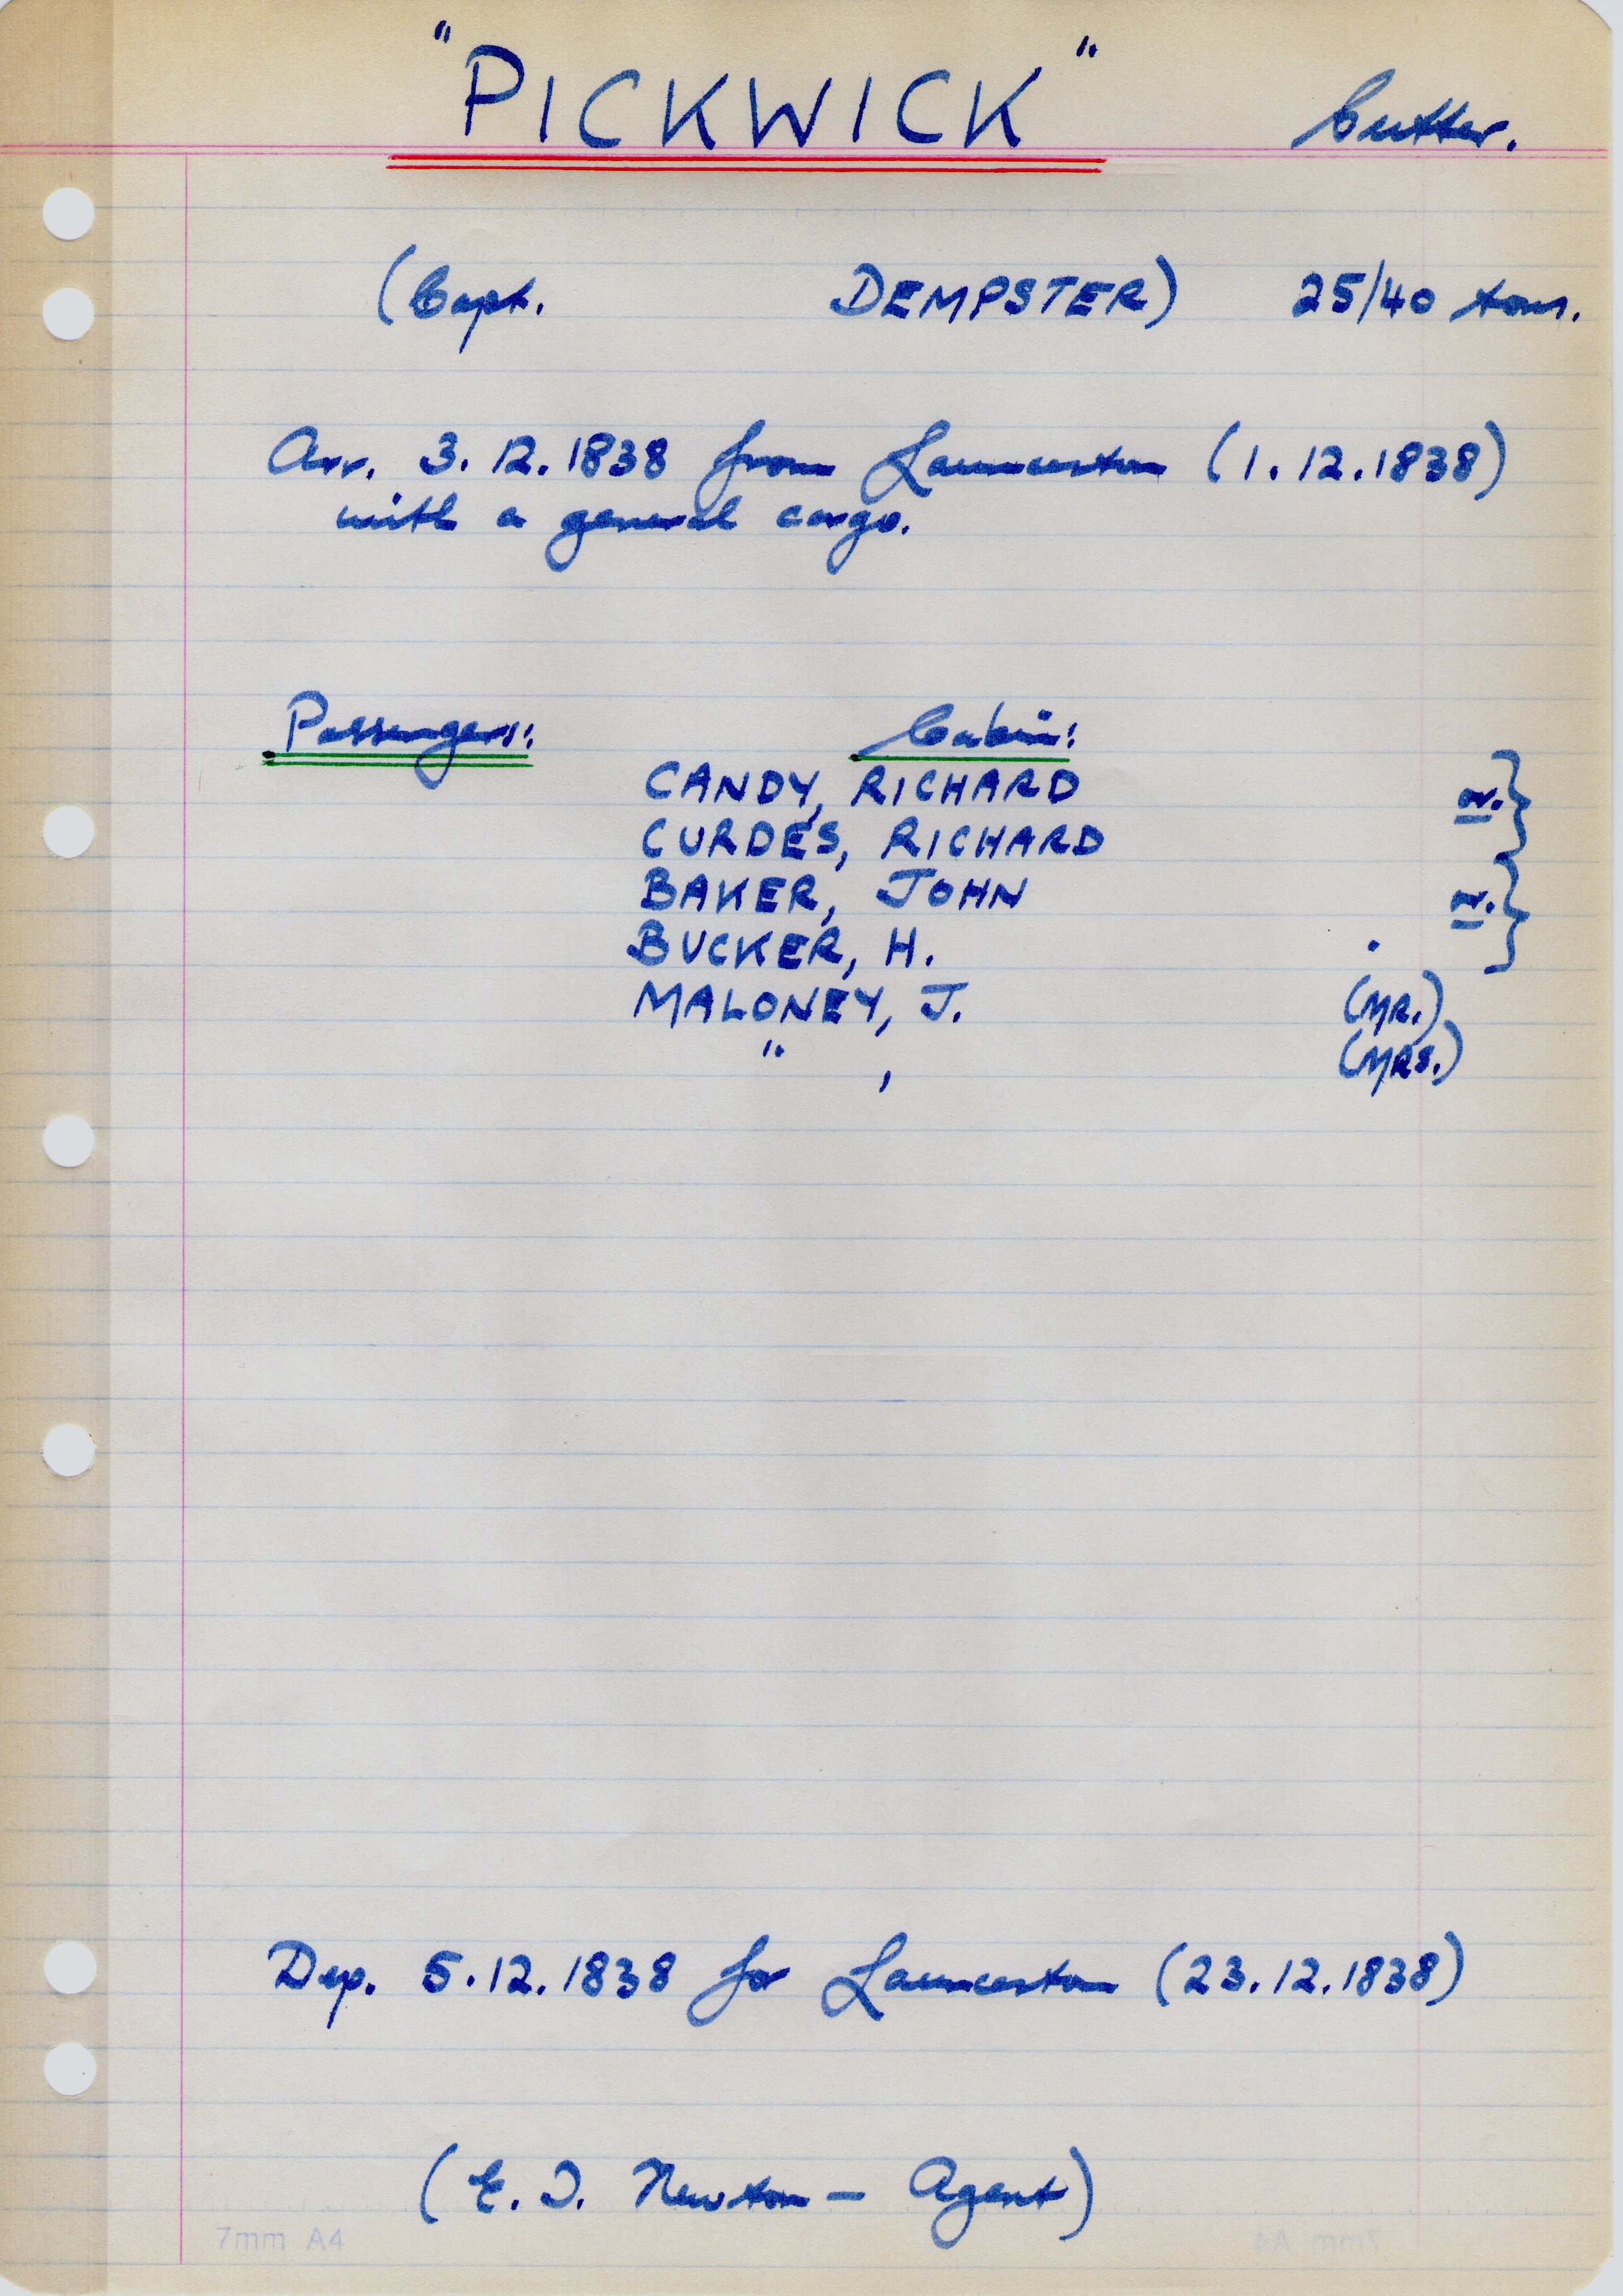 "PICKWICK" Cutter.
(Capt. DEMPSTER) 25/40 tons.
Arr. 3.12.1838 from Launceston (1.12.1838)
with a general cargo.
Passengers: Cabin:
CANDY, RICHARD or. }
CURDES, RICHARD
BAKER, JOHN or. }
BUCKER, H.
MALONEY, J. (MR.)
" , (MRS.)
Dep. 5.12.1838 for Launceston (23.12.1838)
(E. J. Newton - Agent)
7mm A4
7mm A4